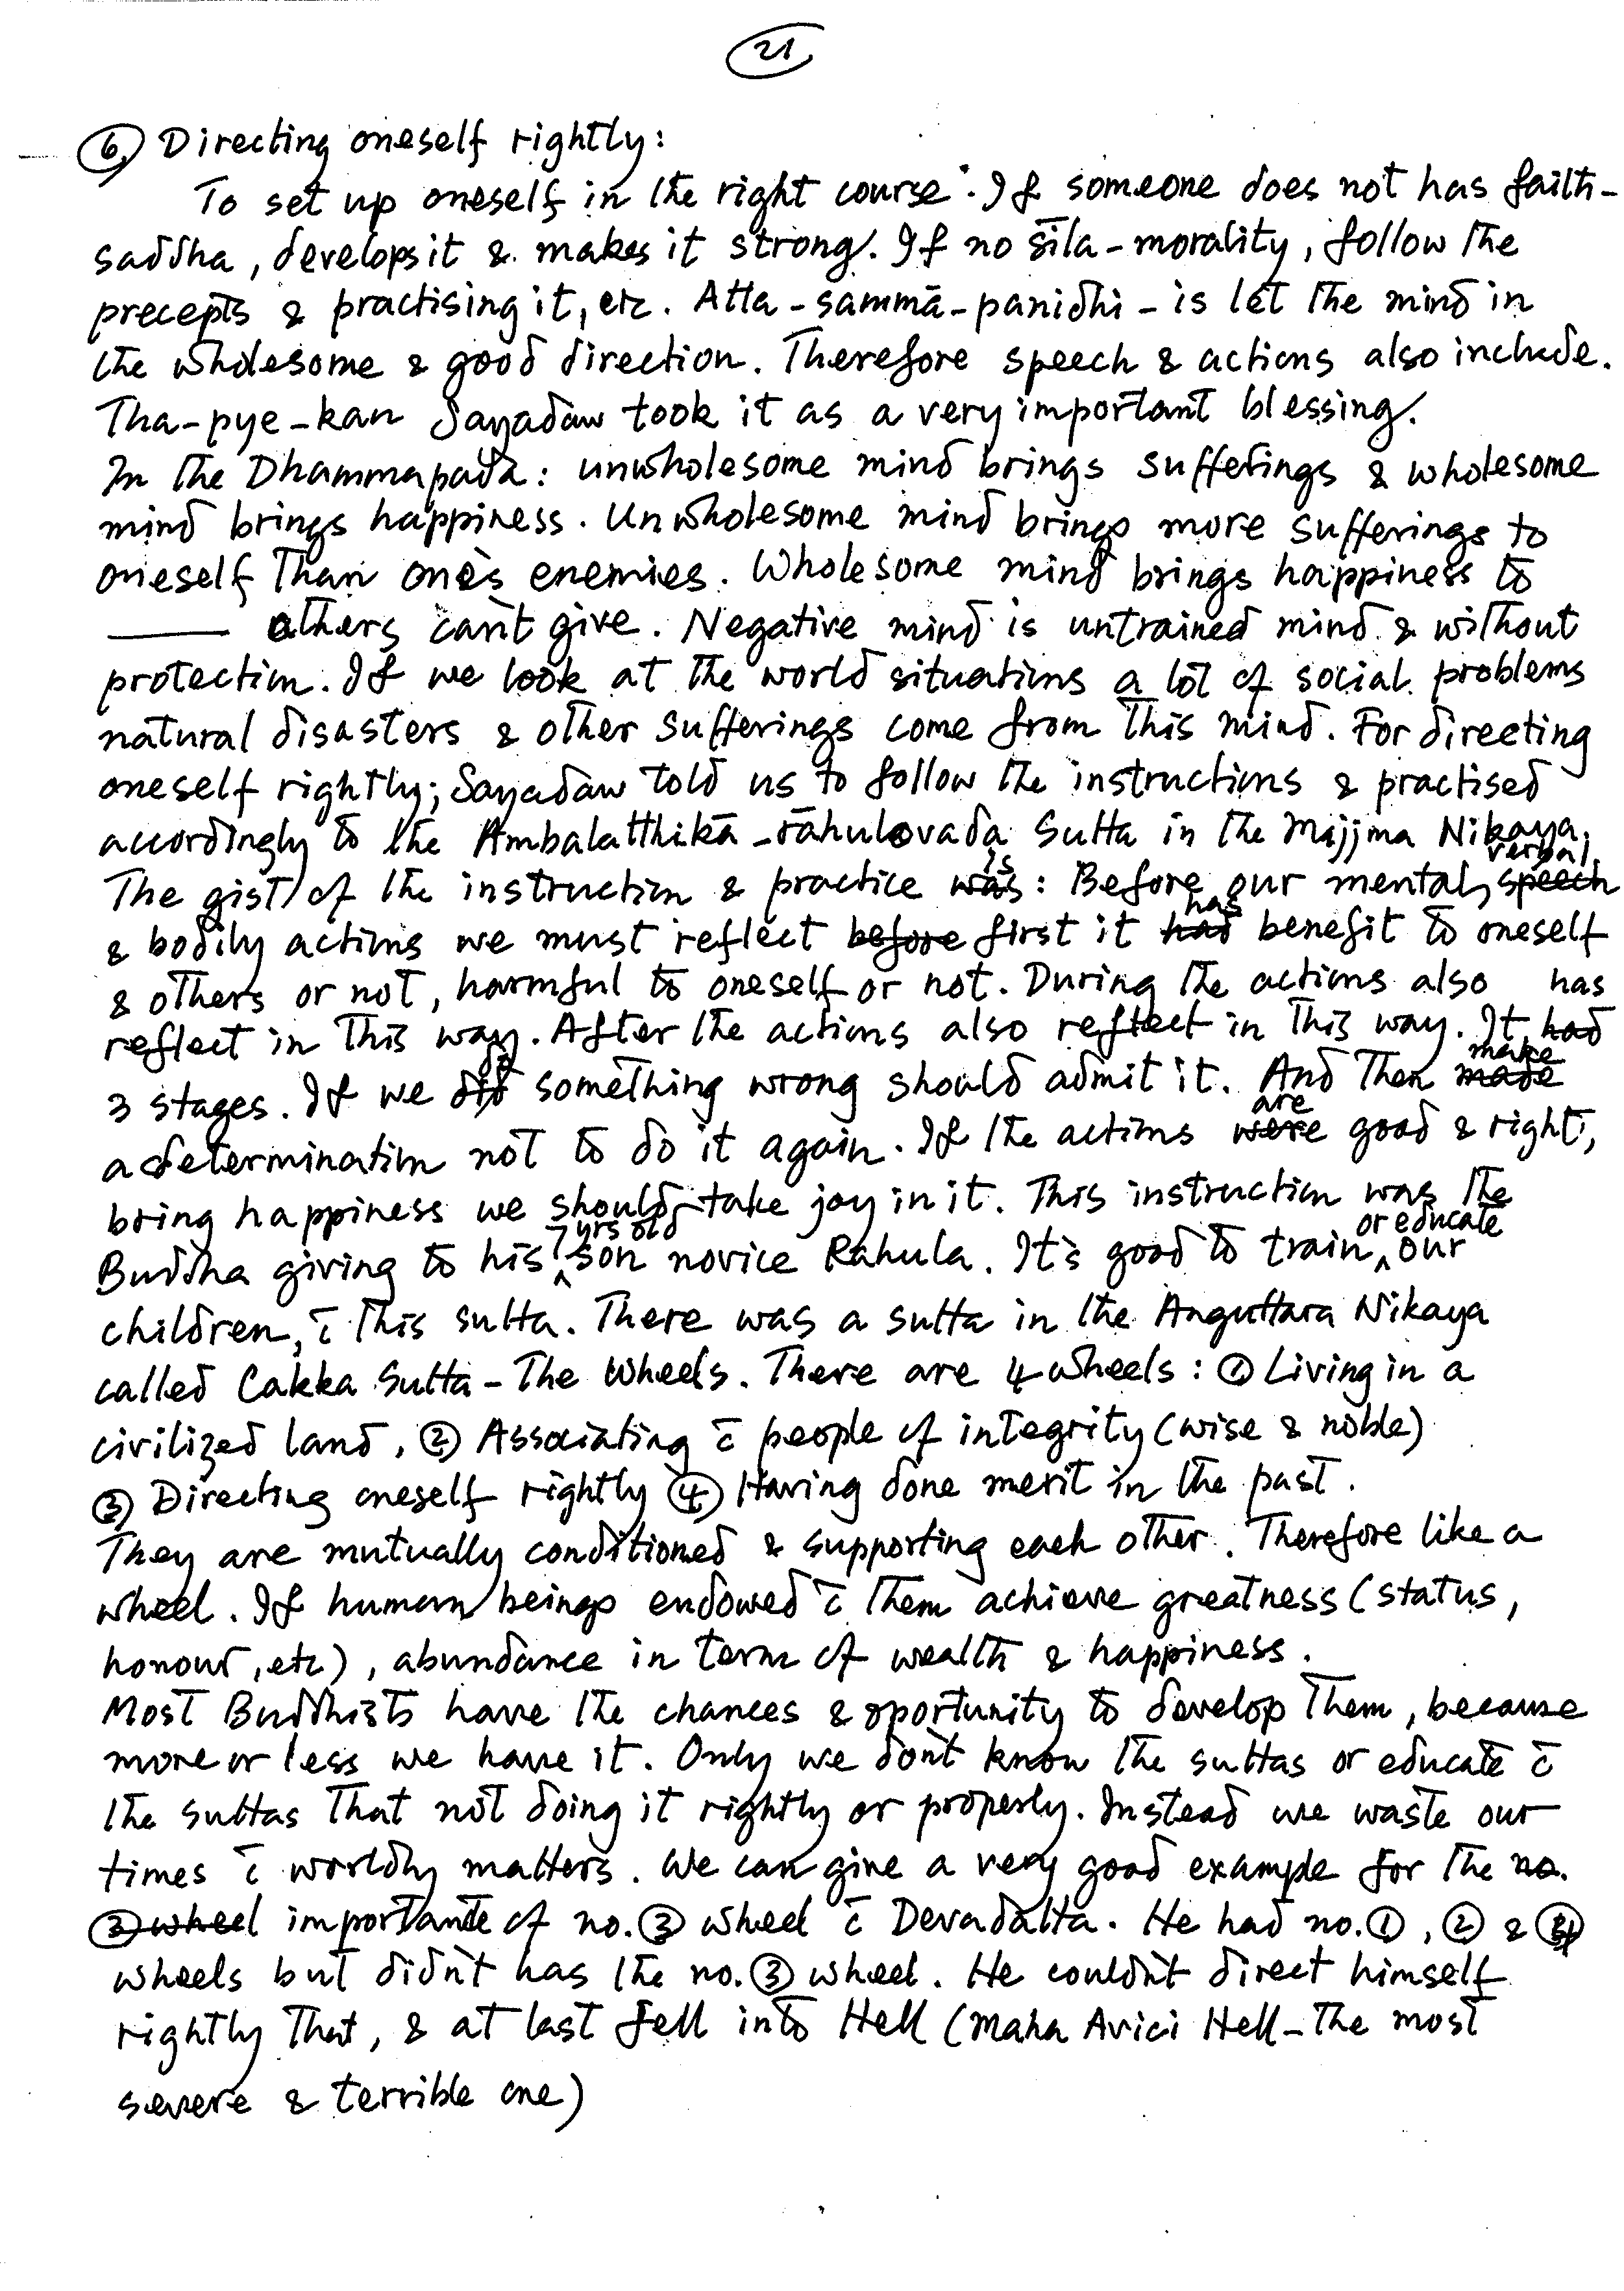 21
⑥ Directing oneself rightly:
To set up oneself in the right course. If someone does not has faith-
saddha, develops it & makes it strong. If no sīla-morality, follow the
precepts & practising it, etc. Atta-sammā-panidhi- is let the mind in
the wholesome & good direction. Therefore speech & actions also include.
Tha-pye-kan Sayadaw took it as a very important blessing.
In the Dhammapada: unwholesome mind brings sufferings & wholesome
mind brings happiness. Unwholesome mind brings more sufferings to
oneself than one's enemies. Wholesome mind brings happiness to
——— others can't give. Negative mind is untrained mind & without
protection. If we look at the world situations a lot of social problems
natural disasters & other sufferings come from this mind. For directing
oneself rightly; Sayadaw told us to follow the instructions & practised
accordingly to the Ambalatthikā-rāhulovada Sutta in the Majjma Nikaya.
The gist of the instruction & practice was is: Before our mental, speech verbal
& bodily actions we must reflect before first it had has benefit to oneself
& others or not, harmful to oneself or not. During the actions also
reflect in this way. After the actions also reflect in this way. It had has
3 stages. If we did do something wrong should admit it. And then made make
a determination not to do it again. If the actions were are good & right,
bring happiness we should take joy in it. This instruction was the
Buddha giving to his 7 yrs old son novice Rahula. It's good to train or educate our
children, c̄ this sutta. There was a sutta in the Anguttara Nikaya
called Cakka Sutta - The Wheels. There are 4 wheels: ① Living in a
civilized land, ② Associating c̄ people of integrity (wise & noble)
③ Directing oneself rightly ④ Having done merit in the past.
They are mutually conditioned & supporting each other. Therefore like a
wheel. If human beings endowed c̄ them achieve greatness (status,
honour, etc), abundance in term of wealth & happiness.
Most Buddhists have the chances & oportunity to develop them, because
more or less we have it. Only we don't know the suttas or educate c̄
the suttas that not doing it rightly or properly. Instead we waste our
times c̄ worldly matters. We can give a very good example for the no.
③ wheel importante of no. ③ wheel c̄ Devadatta. He had no. ①, ② & ④
wheels but didn't has the no. ③ wheel. He couldn't direct himself
rightly that, & at last fell into Hell (Maha Avici Hell - the most
severe & terrible one)